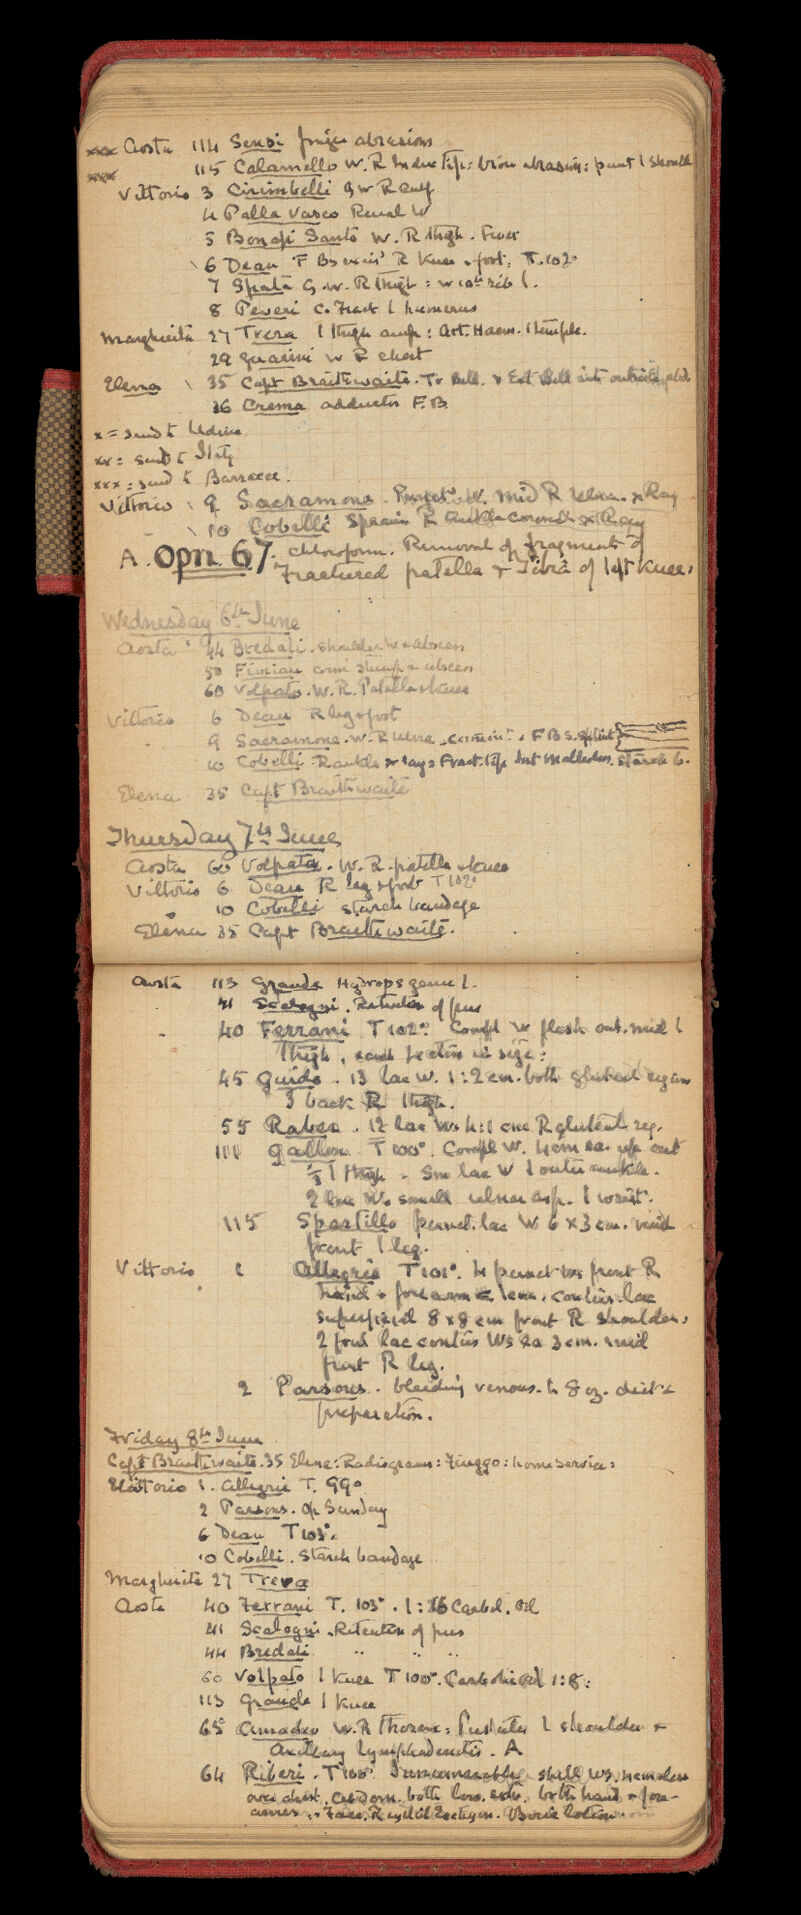 xxx Aosta 114 Sensi finger abrasions
xxx 115 Calamello W. R Index Tip: brow abrasion: punct l should
Vittorio 3 Cirimbelli G W R
4 Palla Vasco Renal W
5 Bonafi Santo W. R Thigh. Fever
6 Dean F Bs excis' R Knee & foot: T. 102°
7 Spata G. W. R Thigh: W 10th rib l.
8 Peveri C. Fract l humerus
Margherita 27 Treva l Thigh amp: Art. Haem. l temple.
29 Guarini W R chest
Elena 35 Capt Braithwaite. Tr Bell. & Ext Bell into
36 Crema adductor F.B.
x = send to Udine
xx = send to Italy
xxx = send to Barracca.
Vittorio 9 Sacramone. Punct W. mid R ulna. x Ray
10 Cobelli Sprain R Ankle x Ray
A. Opn 67. Chloroform. Removal of fragments of
Fractured patella & Tibia of left Knee.
Wednesday 6th June
Aosta 44 Bredali. shoulder W & abscess
50 Fimian stump & abscess
60 Volpato. W. R. Patella & knee
Vittorio 6 Dean R leg & foot
9 Sacramone. W. R Ulna. F B s. splint
10 Cobelli R ankle x ray: Fract. Tip Int Malleolus. starch b.
Elena 35 Capt Braithwaite
Thursday 7th June
Aosta 60 Volpato. W. R. patella & knee
Vittorio 6 Dean R leg & foot T 102°
10 Cobelli starch bandage
Elena 35 Capt Braithwaite.
Aosta 113 Grande Hydrops genu l.
41 Scalogni. Retention of pus
40 Ferrani T 102°: Compl W flesh out. mid l
Thigh, each in size:
45 Guido. 13 lac W. 1:2 cm. both gluteal region
3 back R Thigh.
55 Raber. 12 lac Ws R gluteal reg.
111 Gallon T 100°. Compl W. 4 cm ea. up out
⅓ l Thigh. Sm lac W l outer ankle.
2 lac Ws small ulnar asp. l wrist.
115 Spartillo punct. lac W 6 x 3 cm. mid
front l leg.
Vittorio 1 Allegrie T 101°. 4 punct Ws front R
hand & forearm 1 cm. contus. lac
superficial 8 x 8 cm front R shoulder,
2 lac contus Ws ea 3 cm. mid
front R leg.
2 Parsons. bleeding venous. to 8 oz.
preparation.
Friday 8th June
Capt Braithwaite. 35 Elena: Radiograms: home service:
Vittorio 1. Allegrie T. 99°
2 Parsons. Op Sunday
6 Dean T 103°.
10 Cobelli. Starch bandage
Margherita 27 Treva
Aosta 40 Ferrani T. 103°. 1:16 Carbol. Oil
41 Scalogni. Retention of pus
44 Bredali " " "
60 Volpato l knee T 100°. Carbol Oil 1:8:
113 Grande l knee
65 Amadeo W. R Thorax: Pustules l shoulder &
Axillary Lymphadenitis. A
64 Riberi. T 100° Innumerable shell Ws.
over chest, abdom. both low. extr. both hand & fore-
arms. Face. Boric lotion